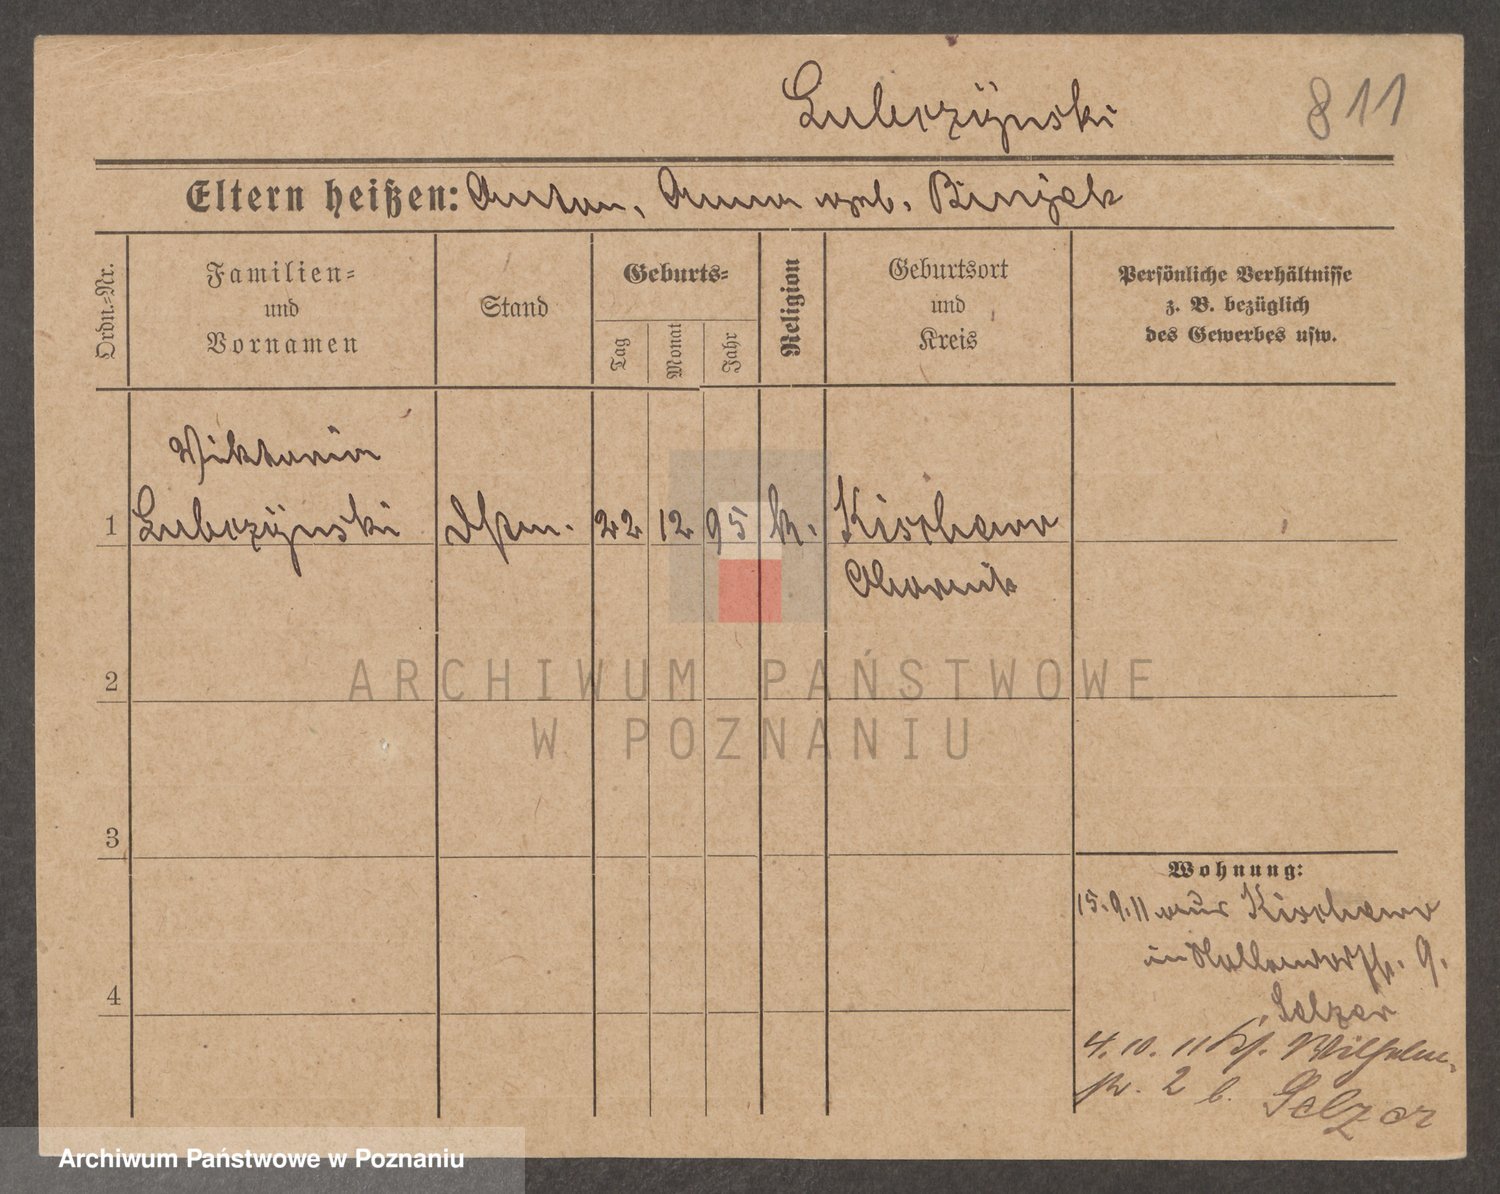 Lubczÿnski 811
Eltern heißen: Anton, Anna geb. Binjek
Ordn.-Nr.
Familien-
und
Vornamen
Stand
Geburts-
Tag
Monat
Jahr
Religion
Geburtsort
und
Kreis
Persönliche Verhältnisse
z. B. bezüglich
des Gewerbes usw.
Viktoria
1 Lubczÿnski Dstm. 22 12 95 k. Kischewo
Obornik
2
3
4
Wohnung:
15.9.11 aus Kischewo
in 9.
Selzer
4. 10. 11 Wilhelm-
str. 2 b. Selzer
ARCHIWUM PAŃSTWOWE
W POZNANIU
Archiwum Państwowe w Poznaniu